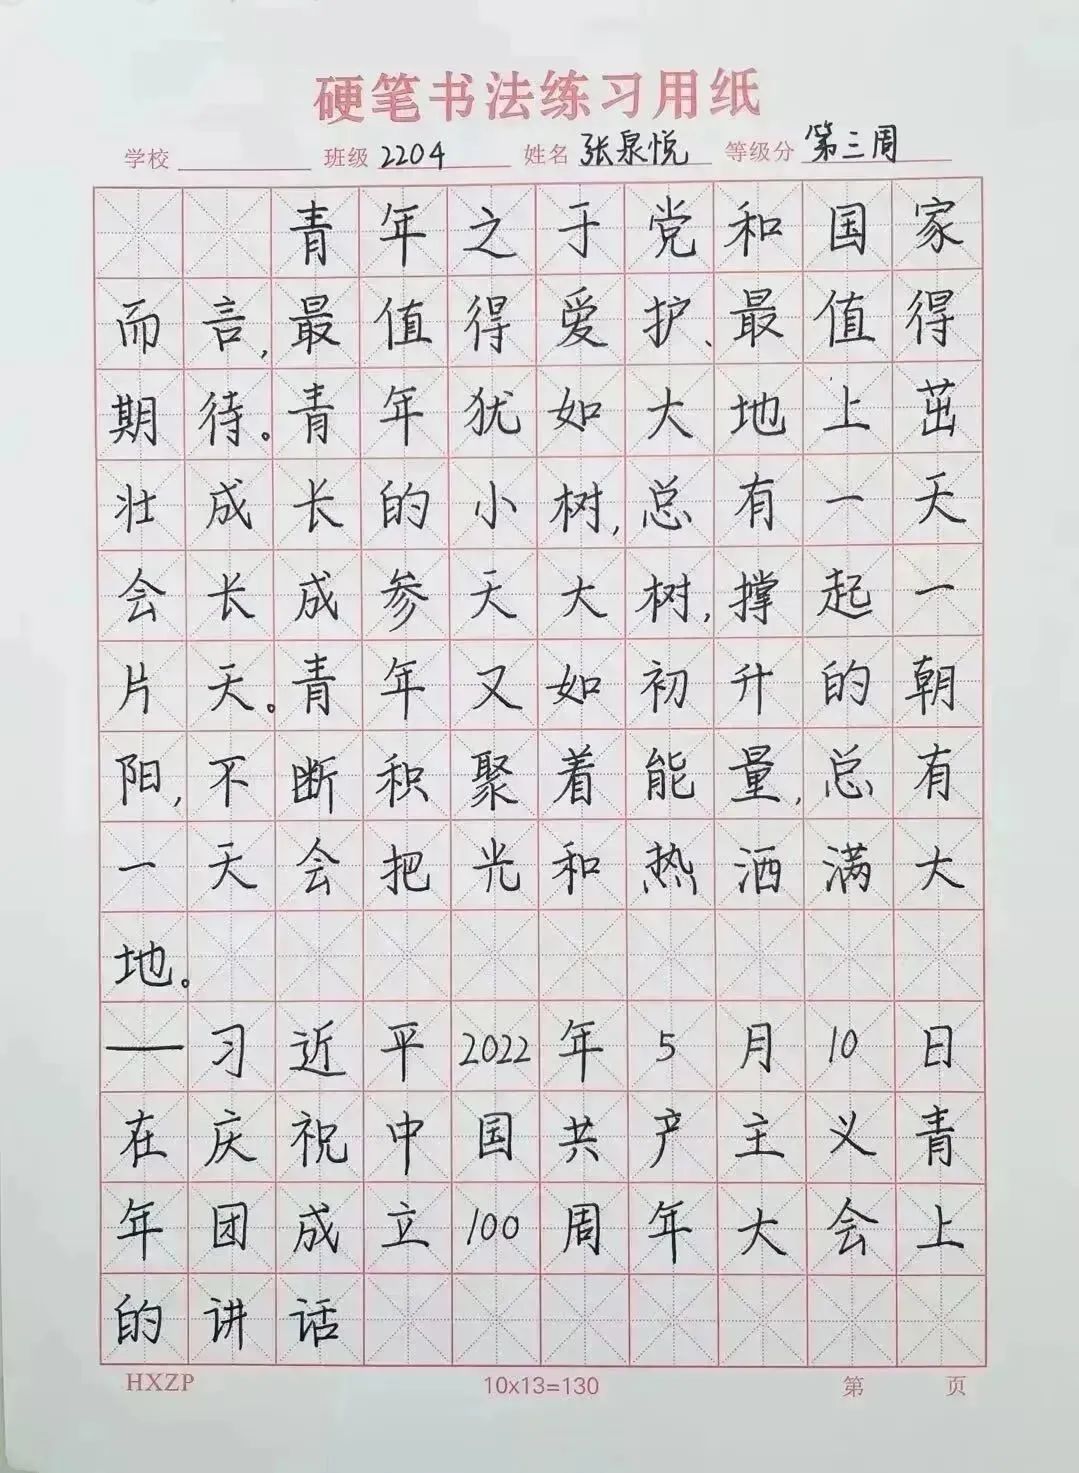 硬笔书法练习用纸
学校 班级 2204 姓名 张泉悦 等级分 第三周
青年之于党和国家
而言,最值得爱护、最值得
期待。青年犹如大地上茁
壮成长的小树,总有一天
会长成参天大树,撑起一
片天。青年又如初升的朝
阳,不断积聚着能量,总有
一天会把光和热洒满大
地。
——习近平2022年5月10日
在庆祝中国共产主义青
年团成立100周年大会上
的讲话
HXZP 10x13=130 第 页